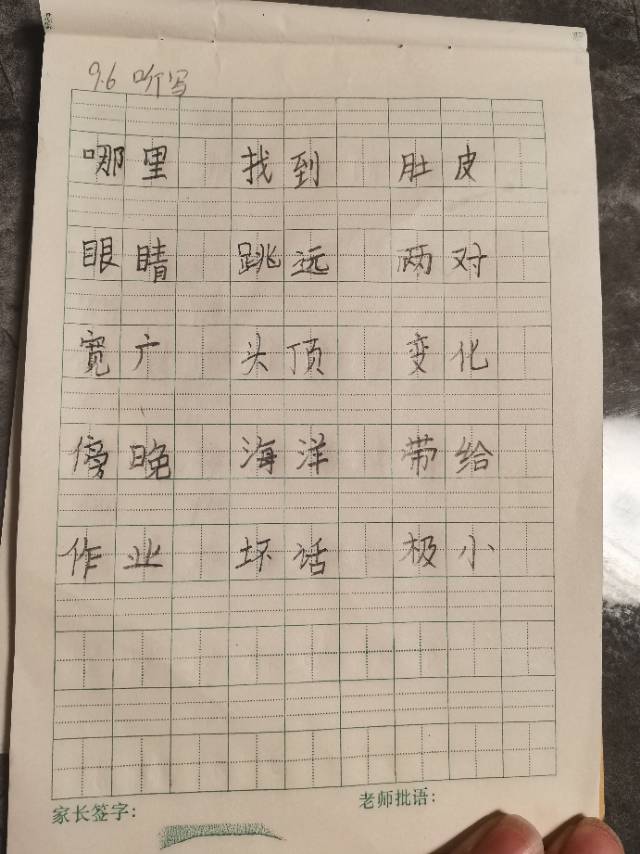 9.6 听写
哪里 找到 肚皮
眼睛 跳远 两对
宽广 头顶 变化
傍晚 海洋 带给
作业 坏话 极小
家长签字： 老师批语：